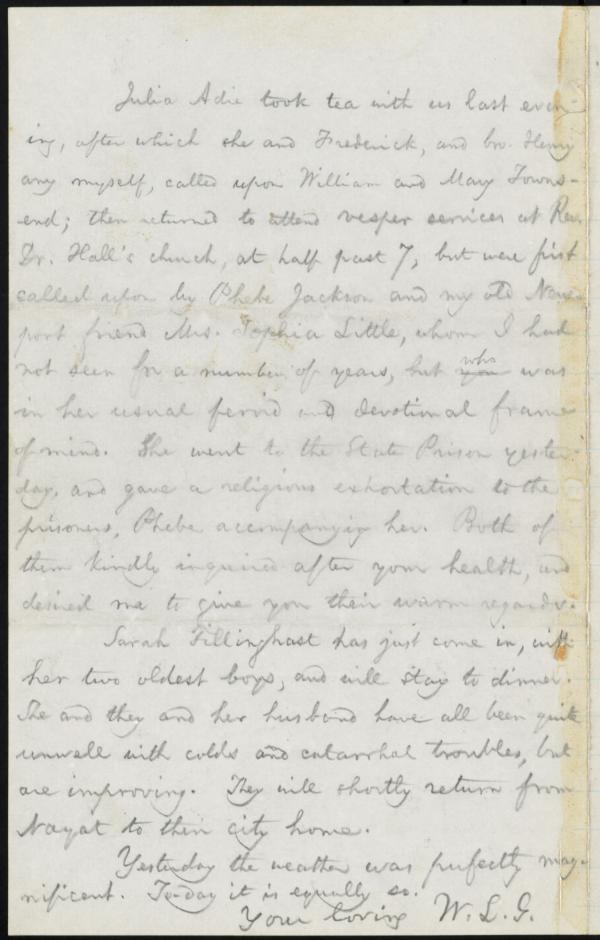 Julia Adie took tea with us last even-
ing, after which she and Frederick, and bro. Henry
any myself, called upon William and Mary Towns-
end; then returned to attend vesper services at Rev.
Dr. Hall's church, at half past 7, but were first
called upon by Phebe Jackson and my old New-
port friend Mrs. Sophia Little, whom I had
not seen for a number of years, but you who was
in her usual fervid and devotional frame
of mind. She went to the State Prison yester-
day, and gave a religious exhortation to the
prisoners, Phebe accompanying her. Both of
them kindly inquired after your health, and
desired me to give you their warm regards.
Sarah Tillinghast has just come in, with
her two oldest boys, and will stay to dinner.
She and they and her husband have all been quite
unwell with colds and catarrhal troubles, but
are improving. They will shortly return from
Nayat to their city home.
Yesterday the weather was perfectly mag-
nificent. To-day it is equally so.
Your loving W. L. G.